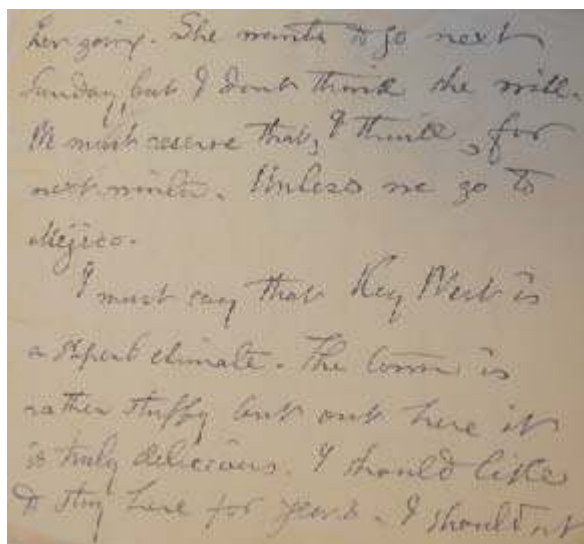 her going. She wants to go next
Sunday, but I dont think she will.
We must reserve that, I think, for
next winter. Unless we go to
Mejico.
I must say that Key West is
a superb climate. The town is
rather stuffy but out here it
is truly delicious. I should like
to stay here for years. I should not